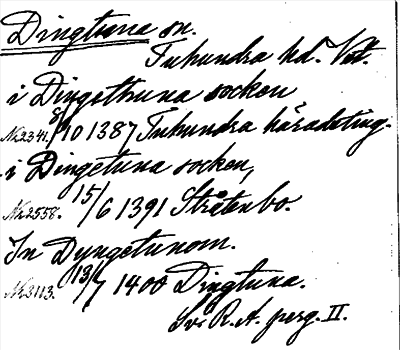 Dingtuna sn.
Tuhundra hd. Vstm.
i Dingethuna socken
Nr 2341. 8/10 1387 Tuhundra häradsting.
i Dingetuna socken,
Nr 2558. 15/6 1391 Stråtenbo.
In Dyngetunom.
Nr 3113. 13/7 1400 Dingtuna.
Sv. R. A. perg. II.